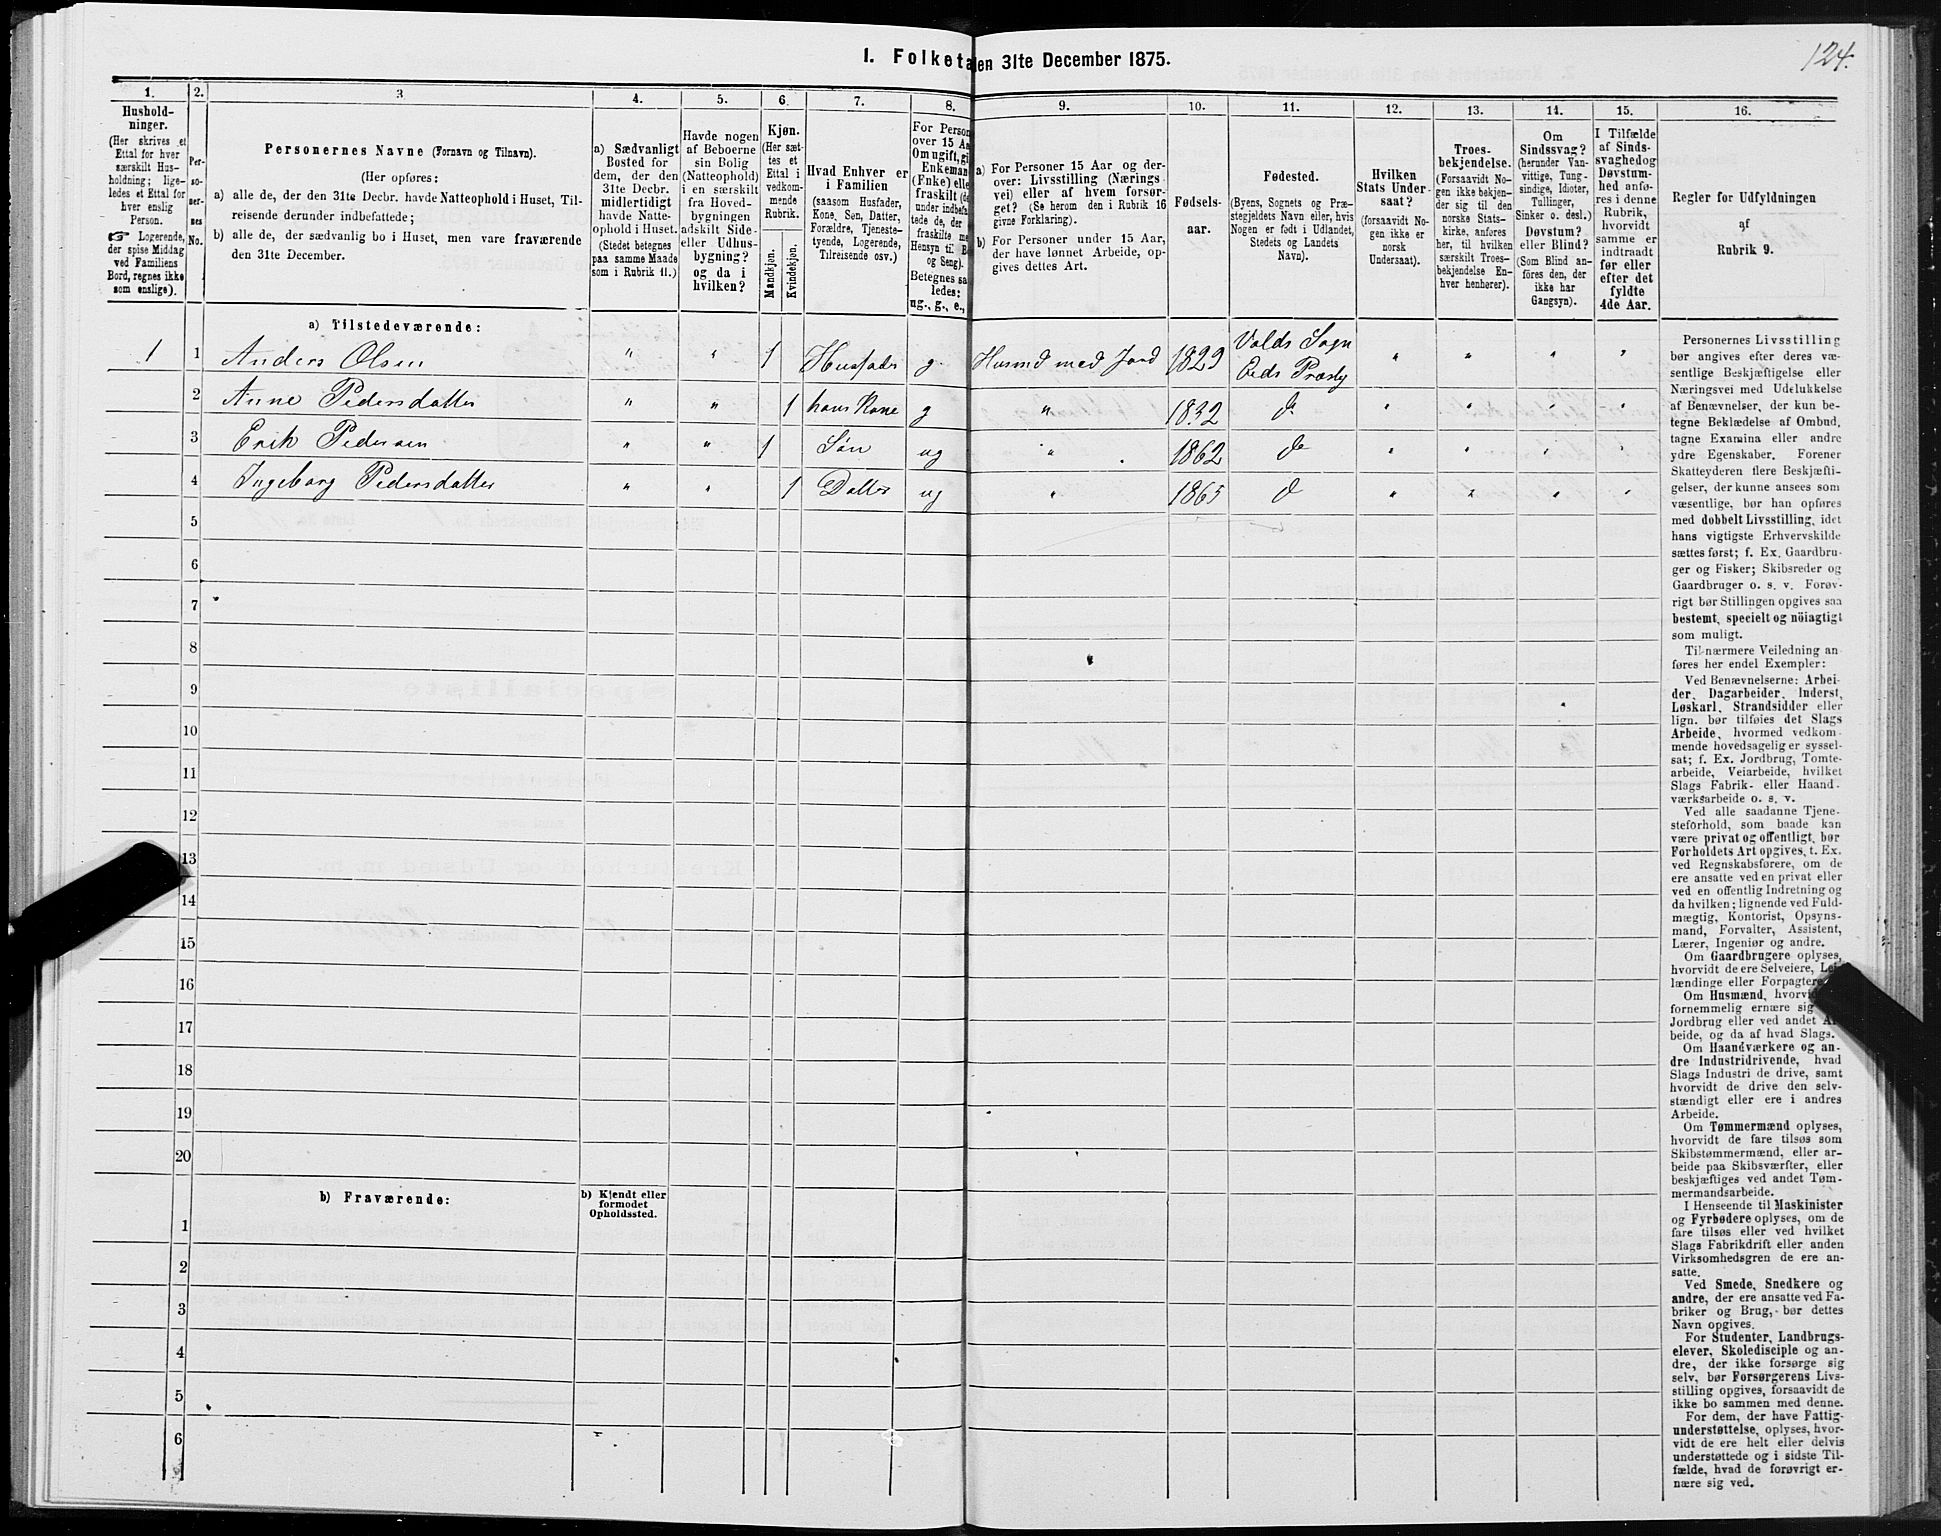 124.
I. Folketa
en 31te December 1875.
1.
Hushold-
ninger.
(Her skrives et
Ettal for hver
særskilt Hus-
holdning; lige-
ledes et Ettal for
hver enslig
Person.
☞ Logerende,
der spise Middag
ved Familiens
Bord, regnes ikke
som enslige).
2.
Per-
so-
ner-
nes
No.
3
Personernes Navne (Fornavn og Tilnavn).
(Her opføres:
a) alle de, der den 31te Decbr. havde Natteophold i Huset, Til-
reisende derunder indbefattede;
b) alle de, der sædvanlig bo i Huset, men vare fraværende
den 31te December.
4.
a) Sædvanligt
Bosted for
dem, der den
31te Decbr.
midlertidigt
havde Natte-
ophold i Huset.
(Stedet betegnes
paa samme Maade
som i Rubrik 11.)
5.
Havde nogen
af Beboerne
sin Bolig
(Natteophold)
i en særskilt
fra Hoved-
bygningen
adskilt Side-
eller Udhus-
bygning?
og da i
hvilken?
6.
Kjøn.
(Her sæt-
tes et
Ettal i
vedkom-
mende
Rubrik.
Mandkjøn.
Kvindekjøn.
7.
Hvad Enhver er
i Familien
(saasom Husfader,
Kone, Søn, Datter,
Forældre, Tjeneste-
tyende, Logerende,
Tilreisende osv.)
8.
For Person
over 15 Aa
Om ugift, gi
Enkeman
(Enke) elle
fraskilt (de
under indbefa
tede de, der
fraskilte me
Hensyn til B
og Seng).
Betegnes sa
ledes:
ug., g., e.,
9.
a) For Personer 15 Aar og der-
over: Livsstilling (Nærings-
vei) eller af hvem forsør-
get? (Se herom den i Rubrik 16
givne Forklaring).
b) For Personer under 15 Aar,
der have lønnet Arbeide, op-
gives dettes Art.
10.
Fødsels-
aar.
11.
Fødested.
(Byens, Sognets og Præ-
stegjeldets Navn eller, hvis
Nogen er født i Udlandet,
Stedets og Landets
Navn).
12.
Hvilken
Stats Under-
saat?
(forsaavidt No-
gen ikke er
norsk
Undersaat).
13.
Troes-
bekjendelse.
(Forsaavidt No-
gen ikke bekjen-
der sig til den
norske Stats-
kirke, anføres
her, til hvilken
særskilt Troes-
bekjendelse En-
hver henhører).
14.
Om
Sindssvag?
(herunder Van-
vittige, Tung-
sindige, Idioter,
Tullinger,
Sinker o. desl.)
Døvstum?
eller Blind?
(Som Blind an-
føres den, der
ikke har
Gangsyn).
15.
I Tilfælde
af Sinds-
svaghed og
Døvstum-
hed anfø-
res i denne
Rubrik,
hvorvidt
samme er
indtraadt
før eller
efter det
fyldte
4de Aar.
16.
Regler for Udfyldningen
af
Rubrik 9.
a) Tilstedeværende:
1 1 Anders Olsen " " 1 Husfader g. Husmd med Jord 1829 Valds Sogn Eids Præstg " " " "
2 Anne Pedersdatter " " 1 hans Kone g " 1832 do " " " "
3 Erik Pedersen " " 1 Søn ug " 1862 do " " " "
4 Ingeborg Pedersdatter " " 1 Datter ug " 1865 do " " " "
5
6
7
8
9
10
11
12
13
14
15
16
17
18
19
20
b) Fraværende:
b) Kjendt eller
formodet
Opholdssted.
1
2
3
4
5
6
Personernes Livsstilling
bør angives efter deres væ-
sentlige Beskjæftigelse eller
Næringsvei med Udelukkelse
af Benævnelser, der kun be-
tegne Beklædelse af Ombud,
tagne Examina eller andre
ydre Egenskaber. Forener
Skatteyderen flere Beskjæfti-
gelser, der kunne ansees som
væsentlige, bør han opføres
med dobbelt Livsstilling, idet
hans vigtigste Erhvervskilde
sættes først; f. Ex. Gaardbru-
ger og Fisker; Skibsreder og
Gaardbruger o. s. v. Forøv-
rigt bør Stillingen opgives saa
bestemt, specielt og nöiagtigt
som muligt.
Til nærmere Veiledning an-
føres her endel Exempler:
Ved Benævnelserne: Arbei-
der, Dagarbeider, Inderst,
Løskarl, Strandsidder eller
lign. bør tilføies det Slags
Arbeide, hvormed vedkom-
mende hovedsagelig er syssel-
sat; f. Ex. Jordbrug, Tomte-
arbeide, Veiarbeide, hvilket
Slags Fabrik- eller Haand-
værksarbeide o. s. v.
Ved alle saadanne Tjene-
steforhold, som baade kan
være privat og offentligt, bør
Forholdets Art opgives, t. Ex.
ved Regnskabsførere, om de
ere ansatte ved en privat eller
ved en offentlig Indretning og
da hvilken; lignende ved Fuld-
mægtig, Kontorist, Opsyns-
mand, Forvalter, Assistent,
Lærer, Ingeniør og andre.
Om Gaardbrugere oplyses,
hvorvidt de ere Selveiere, Lei-
lændinge eller Forpagtere.
Om Husmænd, hvorvid
fornemmelig ernære sig
Jordbrug eller ved andet Ar-
beide, og da af hvad Slags.
Om Haandværkere og an-
dre Industridrivende, hvad
Slags Industri de drive, samt
hvorvidt de drive den selv-
stændigt eller ere i andres
Arbeide.
Om Tømmermænd oplyses,
hvorvidt de fare tilsøs som
Skibstømmermænd, eller ar-
beide paa Skibsværfter, eller
beskjæftiges ved andet Tøm-
mermandsarbeide.
I Henseende til Maskinister
og Fyrbødere oplyses, om de
fare tilsøs eller ved hvilket
Slags Fabrikdrift eller anden
Virksomhedsgren de ere an-
satte.
Ved Smede, Snedkere og
andre, der ere ansatte ved Fa-
briker og Brug, bør dettes
Navn opgives.
For Studenter, Landbrugs-
elever, Skoledisciple og an-
dre, der ikke forsørge sig
selv, bør Forsørgerens Livs-
stilling opgives, forsaavidt de
ikke bo sammen med denne.
For dem, der have Fattig-
understøttelse, oplyses, hvor-
vidt de ere helt eller delvis
understøttede og i sidste Til-
fælde, hvad de forøvrigt er-
nære sig ved.